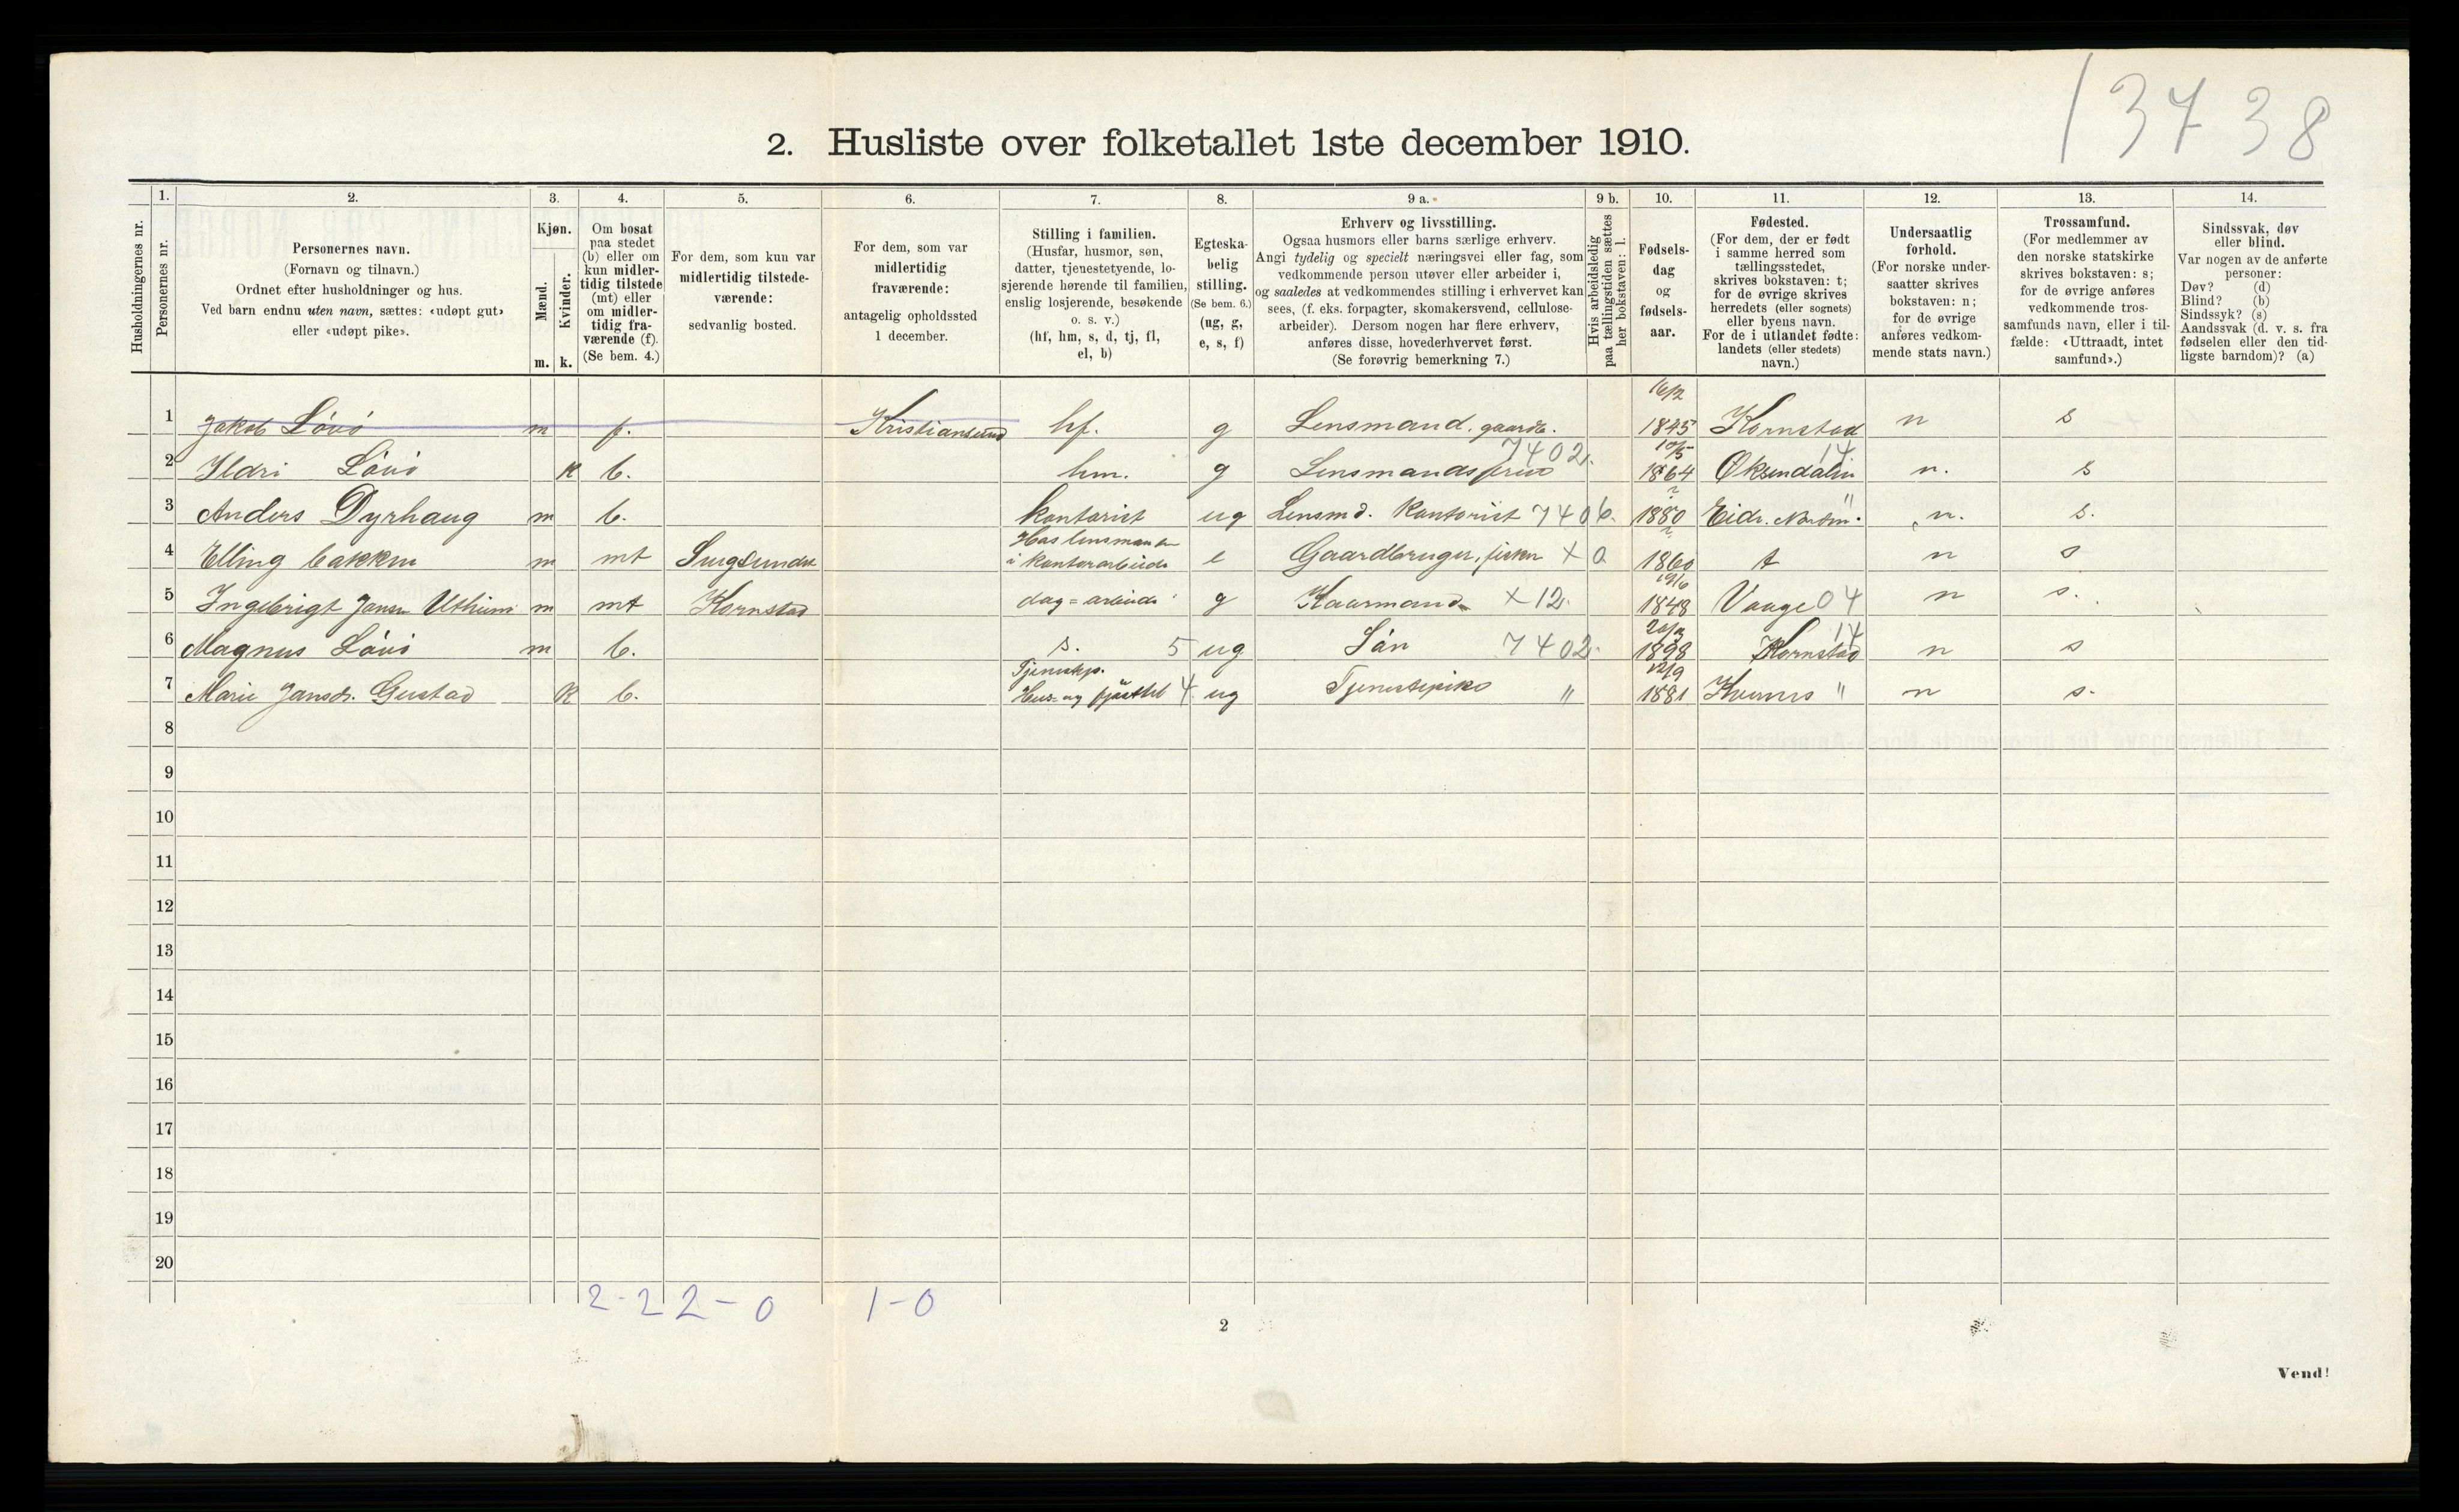 13738
2. Husliste over folketallet 1ste december 1910.
Husholdningernes nr.
1. Personernes nr.
2. Personernes navn. (Fornavn og tilnavn.) Ordnet efter husholdninger og hus. Ved barn endnu uten navn, sættes: «udøpt gut» eller «udøpt pike».
3. Kjøn. Mænd. m. Kvinder. k.
4. Om bosat paa stedet (b) eller om kun midlertidig tilstede (mt) eller om midlertidig fraværende (f). (Se bem. 4.)
5. For dem, som kun var midlertidig tilstedeværende: sedvanlig bosted.
6. For dem, som var midlertidig fraværende: antagelig opholdssted 1 december.
7. Stilling i familien. (Husfar, husmor, søn, datter, tjenestetyende, losjerende hørende til familien, enslig losjerende, besøkende o. s. v.) (hf, hm, s, d, tj, fl, el, b)
8. Egteskabelig stilling. (Se bem. 6.) (ug, g, e, s, f)
9 a. Erhverv og livsstilling. Ogsaa husmors eller barns særlige erhverv. Angi tydelig og specielt næringsvei eller fag, som vedkommende person utøver eller arbeider i, og saaledes at vedkommendes stilling i erhvervet kan sees, (f. eks. forpagter, skomakersvend, cellulosearbeider). Dersom nogen har flere erhverv, anføres disse, hovederhvervet først. (Se forøvrig bemerkning 7.)
9 b. Hvis arbeidsledig paa tællingstiden sættes her bokstaven: l.
10. Fødselsdag og fødselsaar.
11. Fødested. (For dem, der er født i samme herred som tællingsstedet, skrives bokstaven: t; for de øvrige skrives herredets (eller sognets) eller byens navn. For de i utlandet fødte: landets (eller stedets) navn.)
12. Undersaatlig forhold. (For norske undersaatter skrives bokstaven: n; for de øvrige anføres vedkommende stats navn.)
13. Trossamfund. (For medlemmer av den norske statskirke skrives bokstaven: s; for de øvrige anføres vedkommende trossamfunds navn, eller i tilfælde: «Uttraadt, intet samfund».)
14. Sindssvak, døv eller blind. Var nogen av de anførte personer: Døv? (d) Blind? (b) Sindssyk? (s) Aandssvak (d. v. s. fra fødselen eller den tidligste barndom)? (a)
1 Jakob Løvö m f. Kristiansund hf. g Lensmand, gaardb. 16/2 1845 Kornstad n s
2 Ildri Løvö k b. hm. g Lensmandsfrue 7402. 10/5 1864 Øksendalen 14 n. s
3 Anders Dyrhaug m b. kontorist ug Lensmd. Kontorist 7406. 1880 Eide Nordm. " n. s.
4 Elling Bakken m mt Hos lensmanden i kontorarbeide e Gaardbruger, fisker x 0 1860 t n s
5 Ingebrigt Jansen Utheim m mt Kornstad dag=arbeide g Kaarmand x 12. 19/6 1848 Vaage 04 n s.
6 Magnus Løvö m b. s. 5 ug Søn 7402. 1898 Kornstad 14 n s
7 Marie Jansdr. Gustad k b. Tjenestep. Hus- og fjøsstel 4 ug Tjenestepike " 12/9 1881 Kvernes " n s.
8
9
10
11
12
13
14
15
16
17
18
19
20
2-2 2-0 1-0
2
Vend!